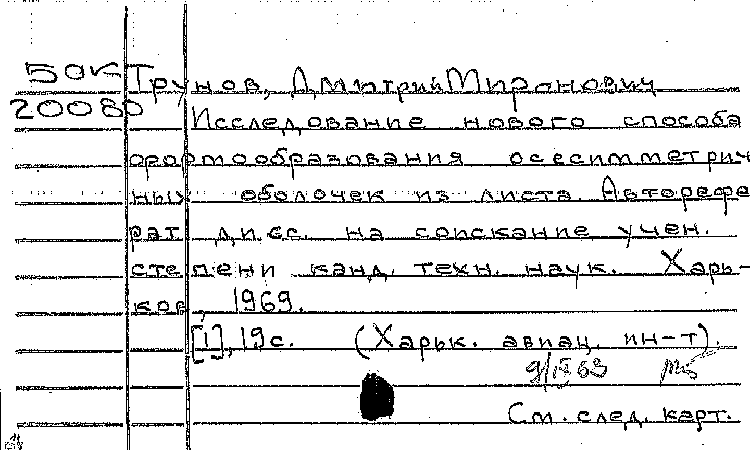 50к Трунов, Дмитрий Миронович
20080 Исследование нового способа
формообразования осесимметрич
ных оболочек из листа. Авторефе
рат дисс. на соискание учен.
степени канд. техн. наук. Харь-
ков, 1969.
[1], 19с. (Харьк. авиац. ин-т).
См. след. карт.